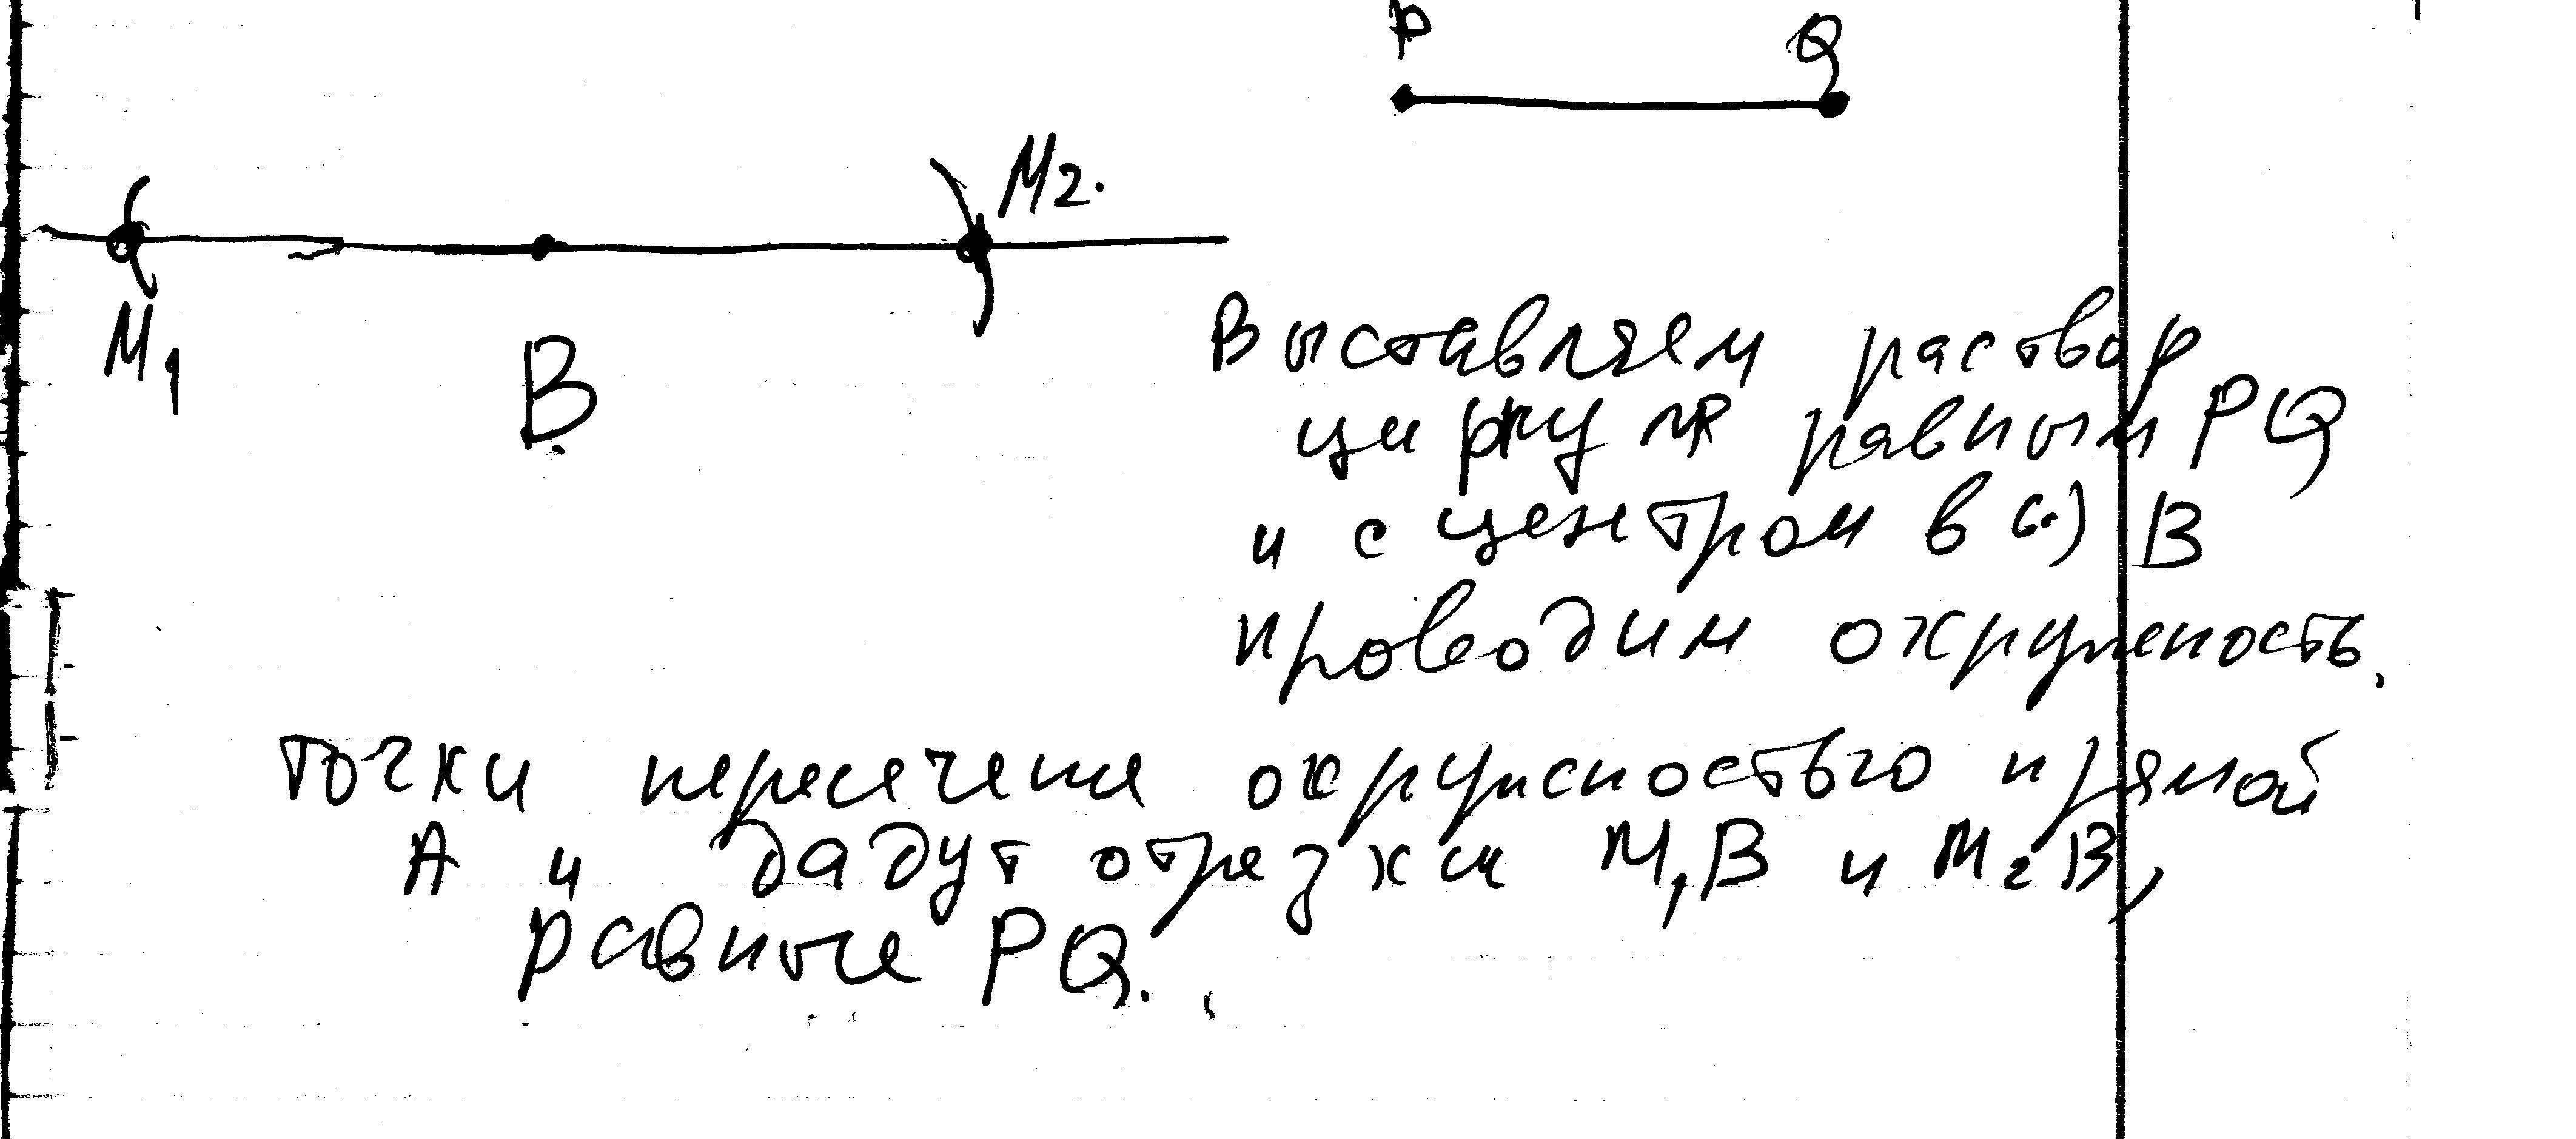 P Q
M2.
M1
B
Выставляем раствор
циркуля равным PQ
и с центром в (·) B
проводим окружность.
Точки пересечение окружностью прямой
А и дадут отрезки M1B и M2B,
равные PQ.